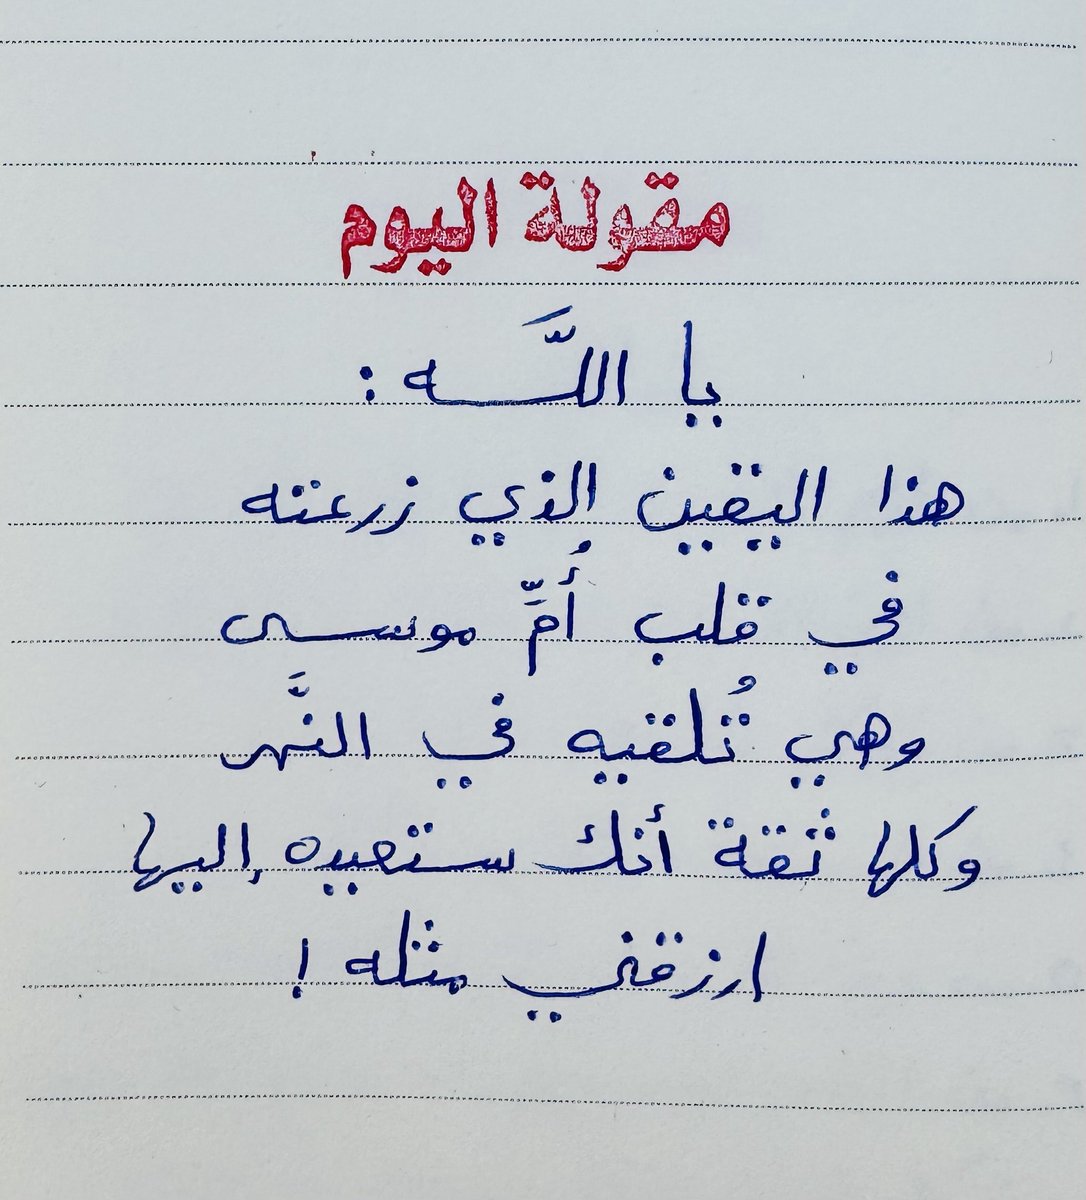 مقولة اليوم
يا اللَّه :
هذا اليقين الذي زرعته
في قلب أُمِّ موسى
وهي تُلقيه في النَّهر
وكلها ثقة أنك ستعيده إليها
ارزقني مثله !